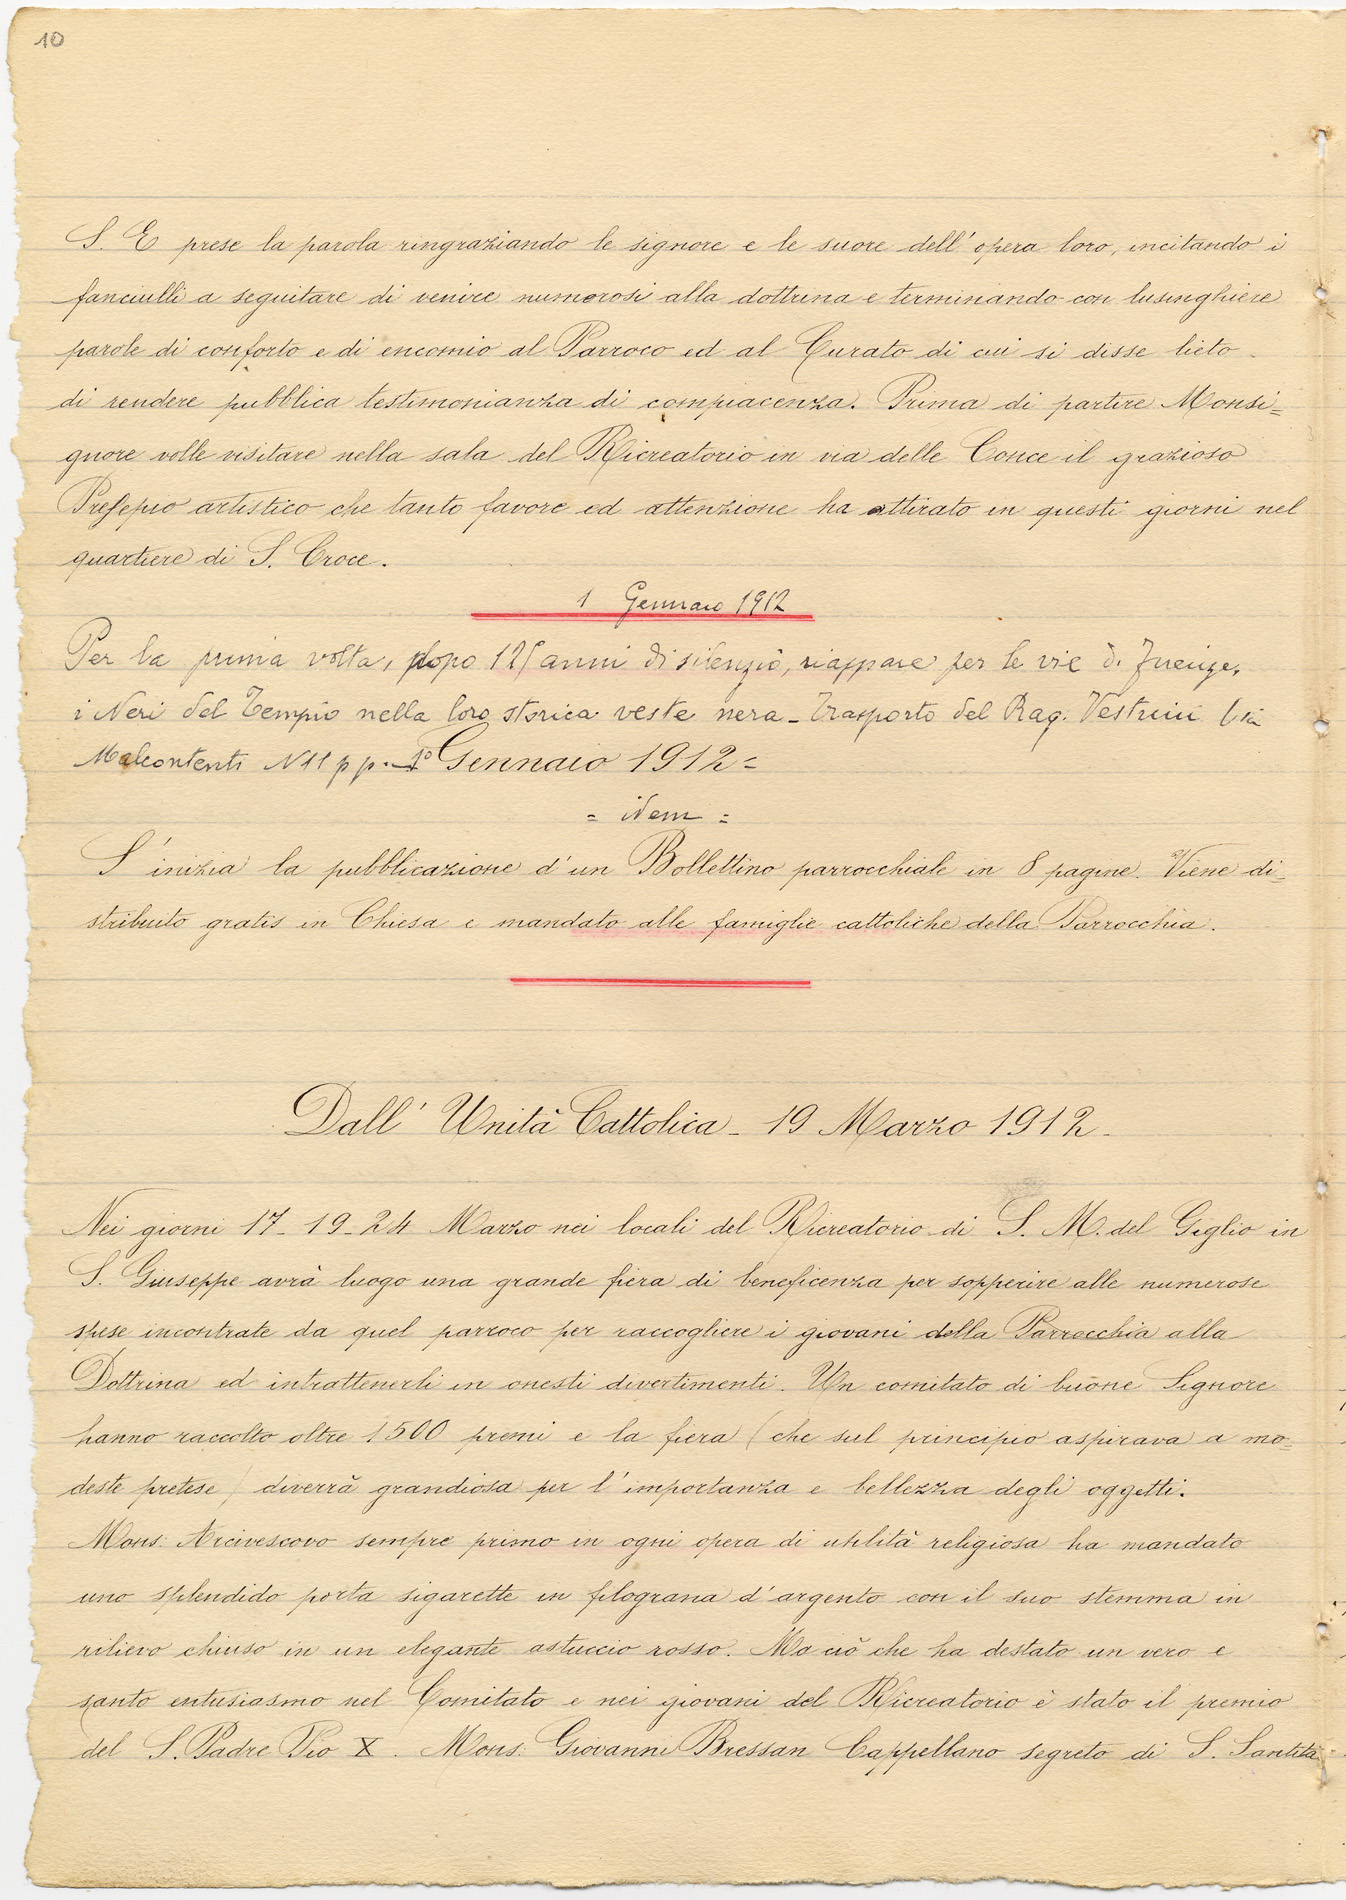 10
S. E prese la parola ringraziando le signore e le suore dell'opera loro, incitando i
fanciulli a seguitare di venire numerosi alla dottrina e terminando con lusinghiere
parole di conforto e di encomio al Parroco ed al Curato di cui si disse lieto
di rendere pubblica testimonianza di compiacenza. Prima di partire Monsi=
gnore volle visitare nella sala del Ricreatorio in via delle Conce il grazioso
Presepio artistico che tanto favore ed attenzione ha attirato in questi giorni nel
quartiere di S. Croce.
1 Gennaio 1912
Per la prima volta, dopo anni di silenzio, riappare per le vie di Firenze,
i Neri del Tempio nella loro storica veste nera - Trasporto del Rag. Vestrini Via
Malcontenti N 11 p p. - 1° Gennaio 1912 =
= idem =
S'inizia la pubblicazione d'un Bollettino parrocchiale in 8 pagine. Viene di=
stribuito gratis in Chiesa e mandato alle famiglie cattoliche della Parrocchia.
Dall' Unità Cattolica - 19 Marzo 1912 -
Nei giorni 17 - 19 - 24 Marzo nei locali del Ricreatorio di S. M. del Giglio in
S. Giuseppe avrà luogo una grande fiera di beneficenza per sopperire alle numerose
spese incontrate da quel parroco per raccogliere i giovani della Parrocchia alla
Dottrina ed intrattenerli in onesti divertimenti. Un comitato di buone Signore
hanno raccolto oltre 1500 premi e la fiera (che sul principio aspirava a mo=
deste pretese) diverrà grandiosa per l'importanza e bellezza degli oggetti.
Mons: Arcivescovo sempre primo in ogni opera di utilità religiosa ha mandato
uno splendido porta sigarette in filograna d'argento con il suo stemma in
rilievo chiuso in un elegante astuccio rosso. Ma ciò che ha destato un vero e
santo entusiasmo nel Comitato e nei giovani del Ricreatorio è stato il premio
del S. Padre Pio X. Mons: Giovanni Bressan Cappellano segreto di S. Santità